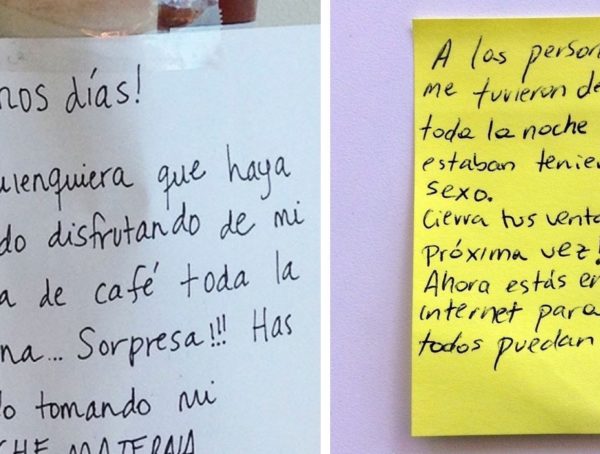 nos días!
uienquiera que haya
do disfrutando de mi
a de café toda la
na... Sorpresa!!! Has
do tomando mi
CHE MATERNA
A las person
me tuvieron de
toda la noche
estaban tenien
sexo.
Cierra tus venta
Próxima vez!
Ahora estás en
internet para
todos puedan